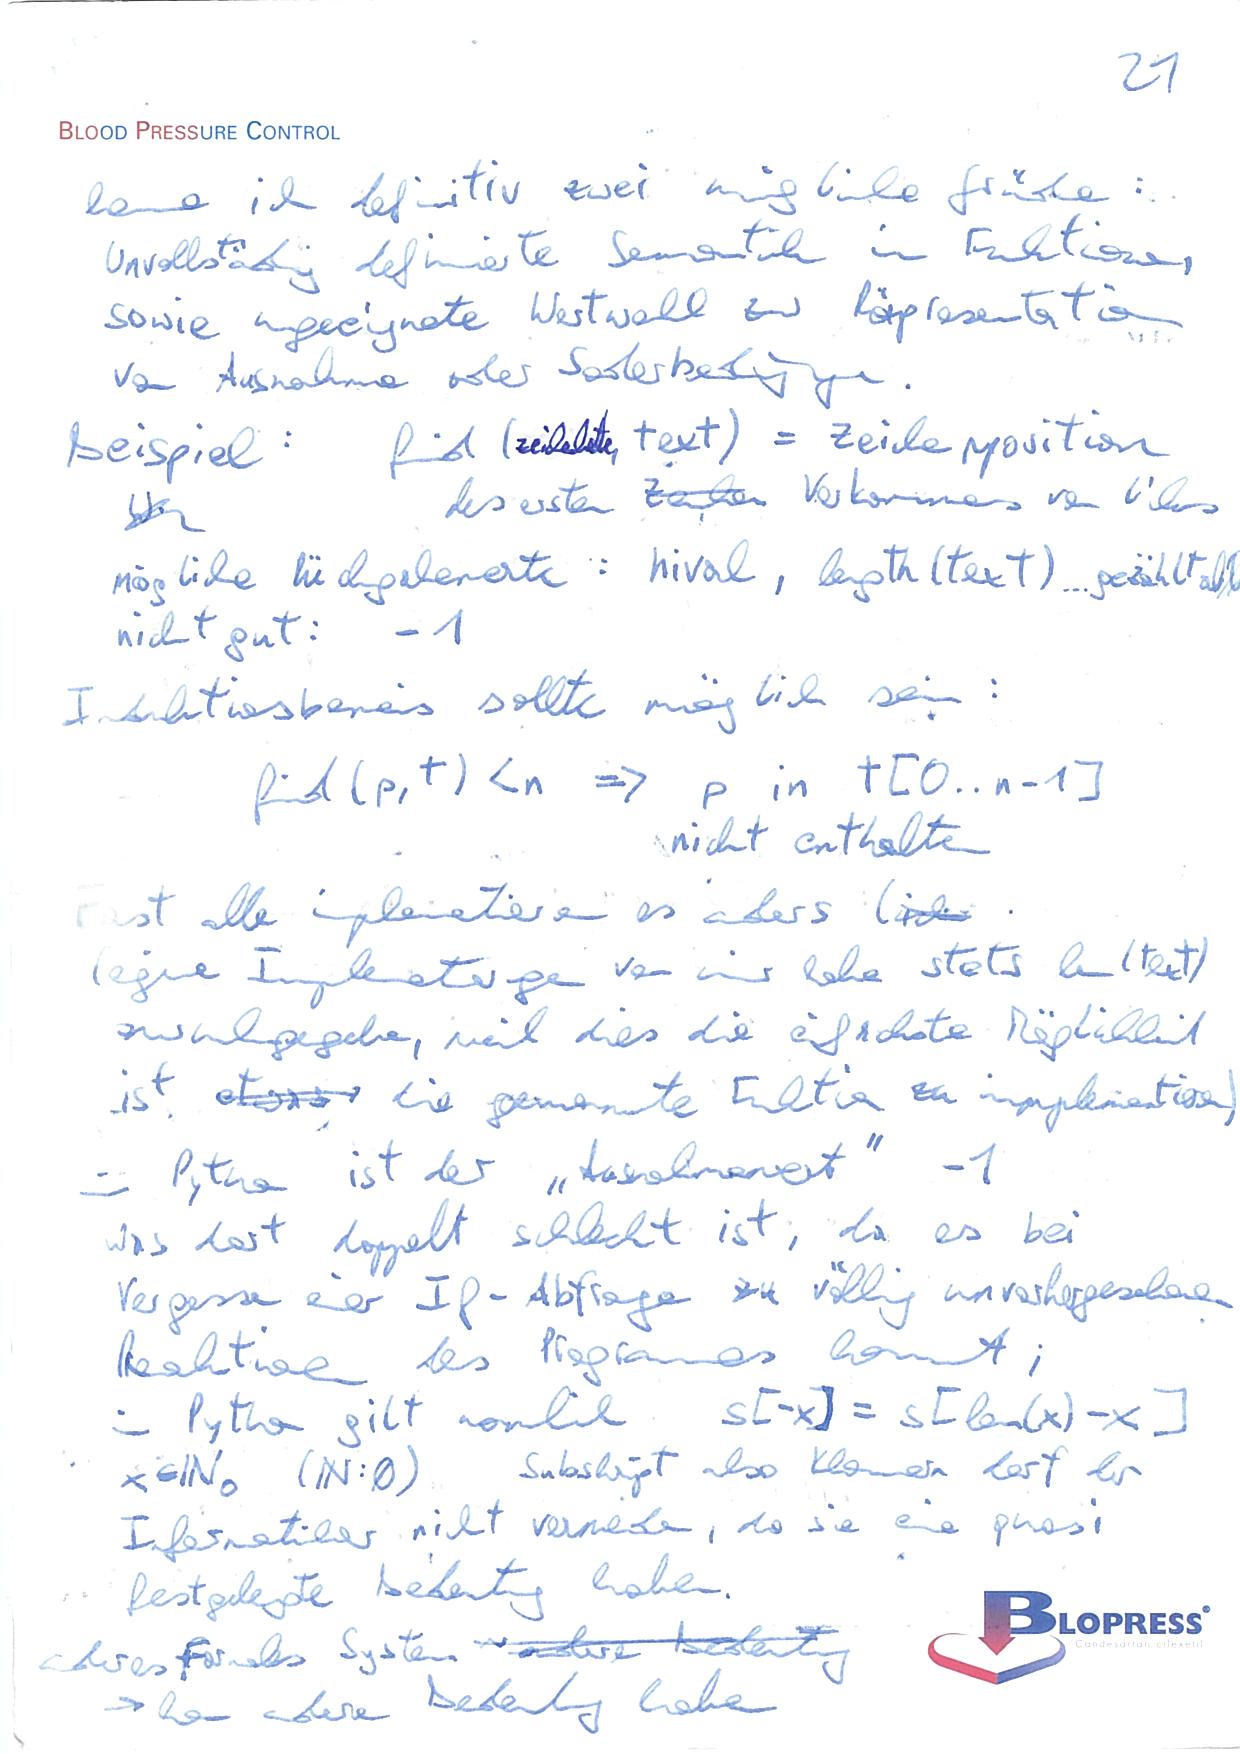 21
BLOOD PRESSURE CONTROL
kenne ich definitiv zwei mögliche Gründe:
Unvollständig definierte Semantik in Funktionen,
sowie ungeeignete Wertwahl zur Räpresentation
von Ausnahmen oder Sonderbedingungen.
Beispiel: find (zeichenkette, text) = Zeichenposition
des ersten Vorkommens von links
mögliche Rückgabewerte: nival, length(text) ... gezählt ab
nicht gut: -1
Induktionsbeweis sollte möglich sein:
find(p,t) < n => p in t[0..n-1]
nicht enthalten
Fast alle implementieren es anders
(eigene Implementierungen von mir haben stets len(text)
zurückgegeben, weil dies die einfachste Möglichkeit
ist die genannte Funktion zu implementieren)
in Python ist der „Ausnahmewert" -1
was dort doppelt schlecht ist, da es bei
Vergessen einer If-Abfrage zu völlig unvorhergesehenen
Reaktionen des Programmes kommt;
in Python gilt nämlich s[-x] = s[len(x)-x]
x∈ℕ₀ (ℕ:0) Subskript also Klammern darf der
Informatiker nicht vermeiden, da sie eine quasi
festgelegte Bedeutung haben.
anderes Formales System
→ kann andere Bedeutung haben
BLOPRESS®
Candesartan cilexetil